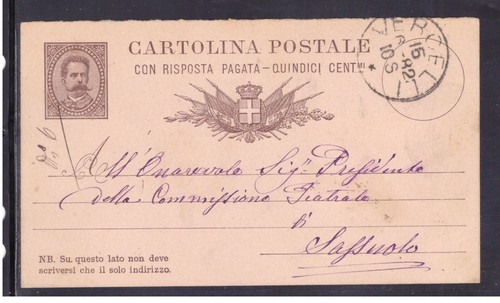 CARTOLINA POSTALE
CON RISPOSTA PAGATA - QUINDICI CENT^MI
VERCELLI
15
82
10 S
All' Onorevole Sig^r Presidente
della Commissione Teatrale
di
Sassuolo
NB. Su questo lato non deve
scriversi che il solo indirizzo.